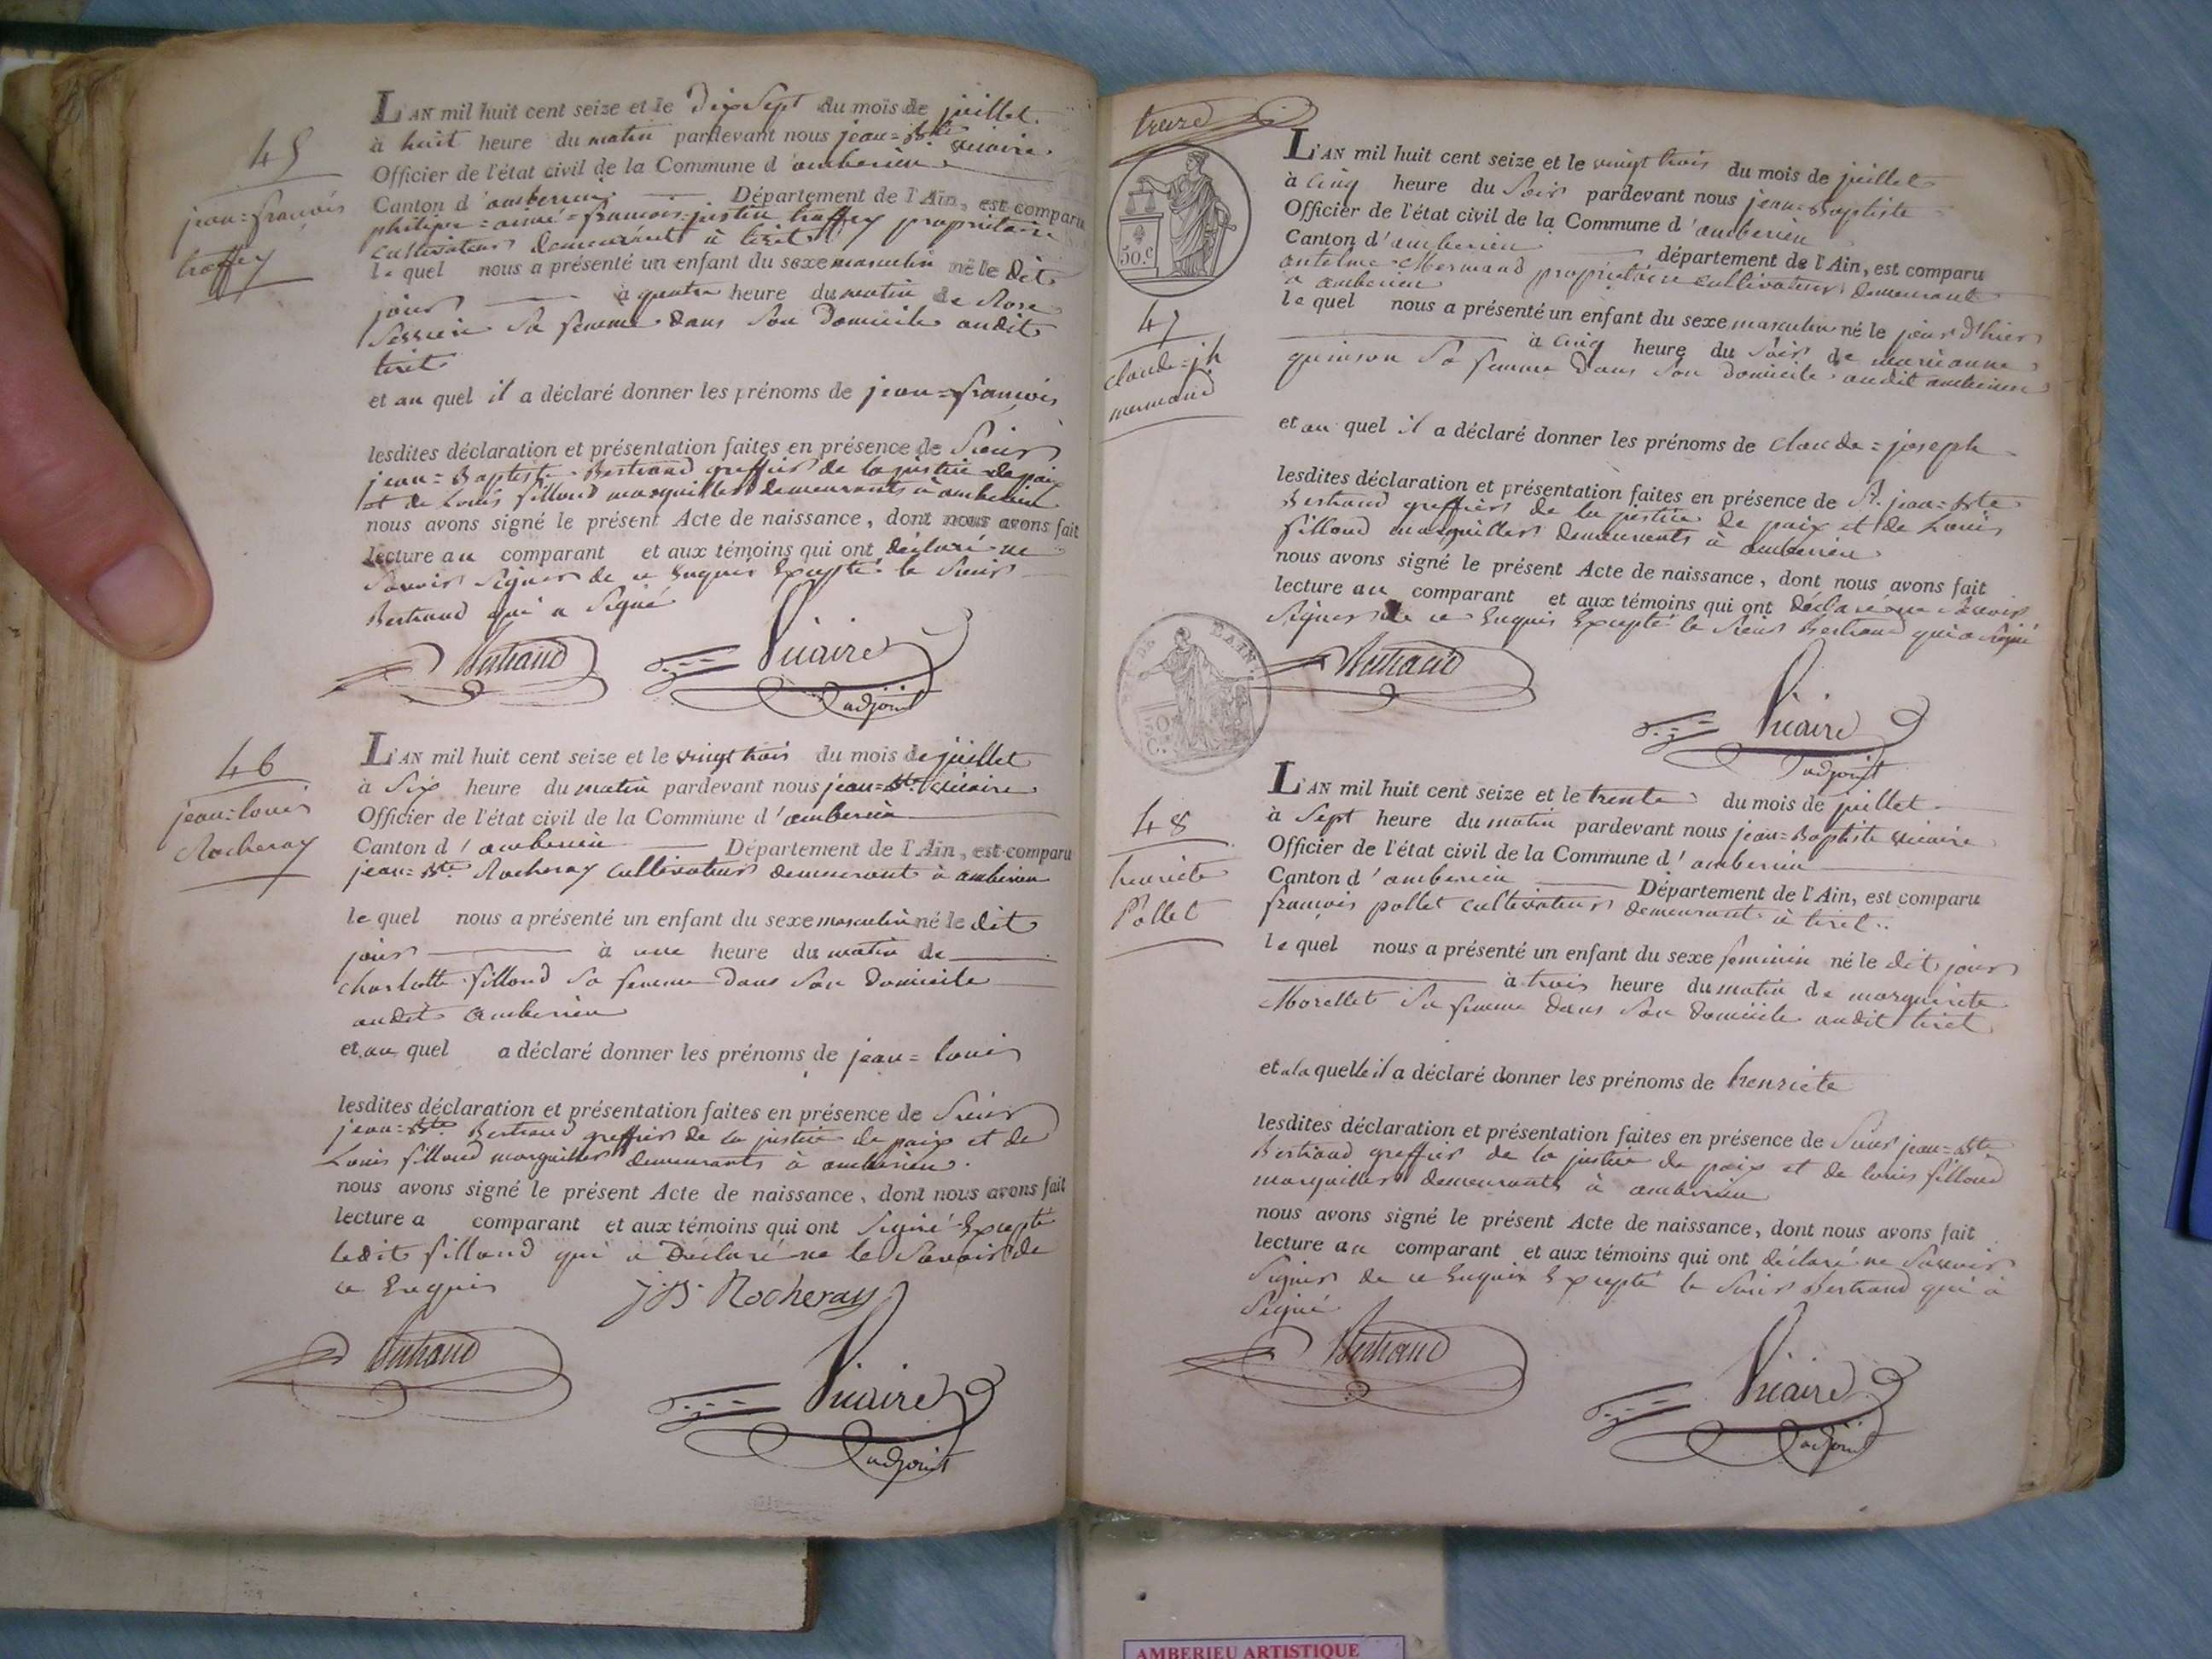 45
jean=françois
traffey
L'AN mil huit cent seize et le dix Sept du mois de juillet
à huit heure du matin pardevant nous jean=Bte vicaire
Officier de l'état civil de la Commune d'amberieu
Canton d'amberieu Département de l'Ain, est comparu
philipe=aimé=francois=justin traffey propriétaire
cultivateur demeurant à tiret
le quel nous a présenté un enfant du sexe masculin né le dit
jour à quatre heure du matin de Rose
Sa femme dans Son Domicile audit
tiret
et au quel il a déclaré donner les prénoms de jean=françois
lesdites déclaration et présentation faites en présence de Sieur
jean=Baptiste Bertrand greffier de la justice de paix
et de Louis filloud marguiller demeurants à amberieu
nous avons signé le présent Acte de naissance, dont nous avons fait
lecture au comparant et aux témoins qui ont déclaré ne
Savoir Signer de ce Enquis Excepté le Sieur
Bertrand qui a Signé
Bertrand Vicaire
adjoint
46
jean=louis
Rocheray
L'AN mil huit cent seize et le vingt trois du mois de juillet
à Six heure du matin pardevant nous jean=Bte vicaire
Officier de l'état civil de la Commune d'amberieu
Canton d'amberieu Département de l'Ain, est comparu
jean=Bte Rocheray cultivateur demeurant à amberieu
le quel nous a présenté un enfant du sexe masculin né le dit
jour à une heure du matin de
charlotte filloud Sa femme dans Son Domicile
audit amberieu
et au quel a déclaré donner les prénoms de jean=louis
lesdites déclaration et présentation faites en présence de Sieur
jean=Bte Bertrand greffier de la justice de paix et de
Louis filloud marguiller demeurants à amberieu.
nous avons signé le présent Acte de naissance, dont nous avons fait
lecture a comparant et aux témoins qui ont Signé Excepté
ledit filloud qui a Déclaré ne le Savoir de
ce Enquis J.B. Rocheray
Bertrand Vicaire
adjoint
treize
50.c
47
claude=jh
mermand
L'AN mil huit cent seize et le vingt trois du mois de juillet
à cinq heure du Soir pardevant nous jean=Baptiste
Officier de l'état civil de la Commune d'amberieu
Canton d'amberieu département de l'Ain, est comparu
antelme Mermand propriétaire cultivateur demeurant
à amberieu
le quel nous a présenté un enfant du sexe masculin né le jour d'hier
à cinq heure du Soir de marieanne
quinson Sa femme Dans Son Domicile audit amberieu
et au quel il a déclaré donner les prénoms de claude=joseph
lesdites déclaration et présentation faites en présence de Sr. jean=Bte
Bertrand greffier de la justice de paix et de Louis
filloud marguiller demeurants à amberieu
nous avons signé le présent Acte de naissance, dont nous avons fait
lecture au comparant et aux témoins qui ont déclaré ne Savoir
Signer de ce Enquis Excepté le Sieur Bertrand qui a Signé
DE L'AIN
50
C.
Bertrand Vicaire
adjoint
48
henriete
Pollet
L'AN mil huit cent seize et le trente du mois de juillet
à Sept heure du matin pardevant nous jean=Baptiste vicaire
Officier de l'état civil de la Commune d'amberieu
Canton d'amberieu Département de l'Ain, est comparu
françois pollet cultivateur demeurant à tiret
le quel nous a présenté un enfant du sexe feminin né le dit jour
à trois heure du matin de marguerite
Morellet Sa femme dans Son Domicile audit tiret
et a la quelle il a déclaré donner les prénoms de henriete
lesdites déclaration et présentation faites en présence de Sieur jean=Bte
Bertrand greffier de la justice de paix et de louis filloud
marguiller demeurants à amberieu
nous avons signé le présent Acte de naissance, dont nous avons fait
lecture au comparant et aux témoins qui ont déclaré ne Savoir
Signer de ce Enquis Excepté le Sieur Bertrand qui a
Signé
Bertrand Vicaire
adjoint
AMBERIEU ARTISTIQUE